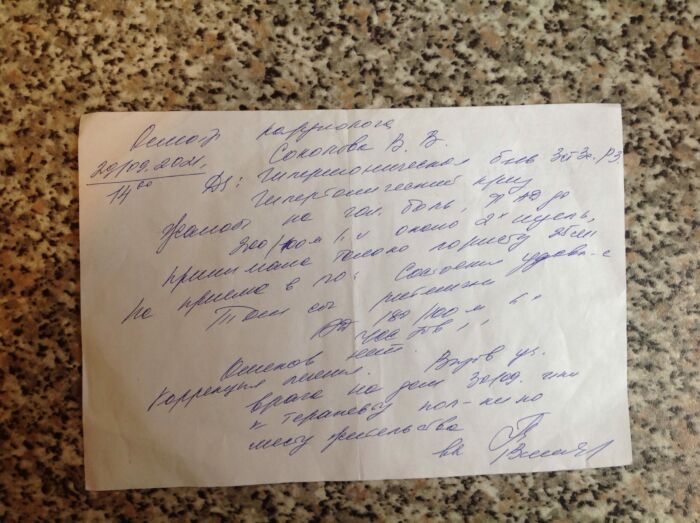 Осмотр кардиолога
29/09.2021, Соколова В. В.
14⁰⁰ Ds: Гипертоническая бол 3ст 3с. Р3.
Гипертонический криз
Жалобы на гол. боль, ↑ АД до
200/100 м около 2х
принимала только лористу 25мл
На приеме в : Состояние удовл-е
Тоны с. ритмичны
АД 180/100 м
ЧСС
Отеков нет.
Коррекция лечения. уч.
врача на дом 30/09. или
к терапевту пол-ки по
месту жительства
вк